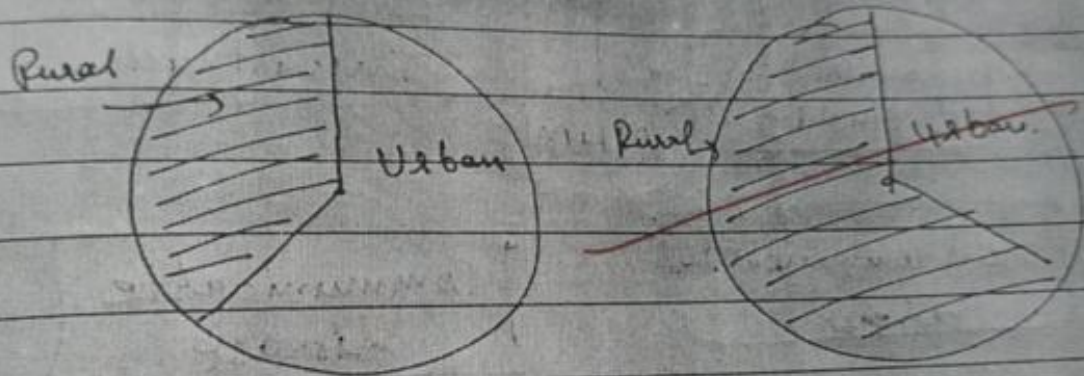 Rural
Urban
Rural
Urban.